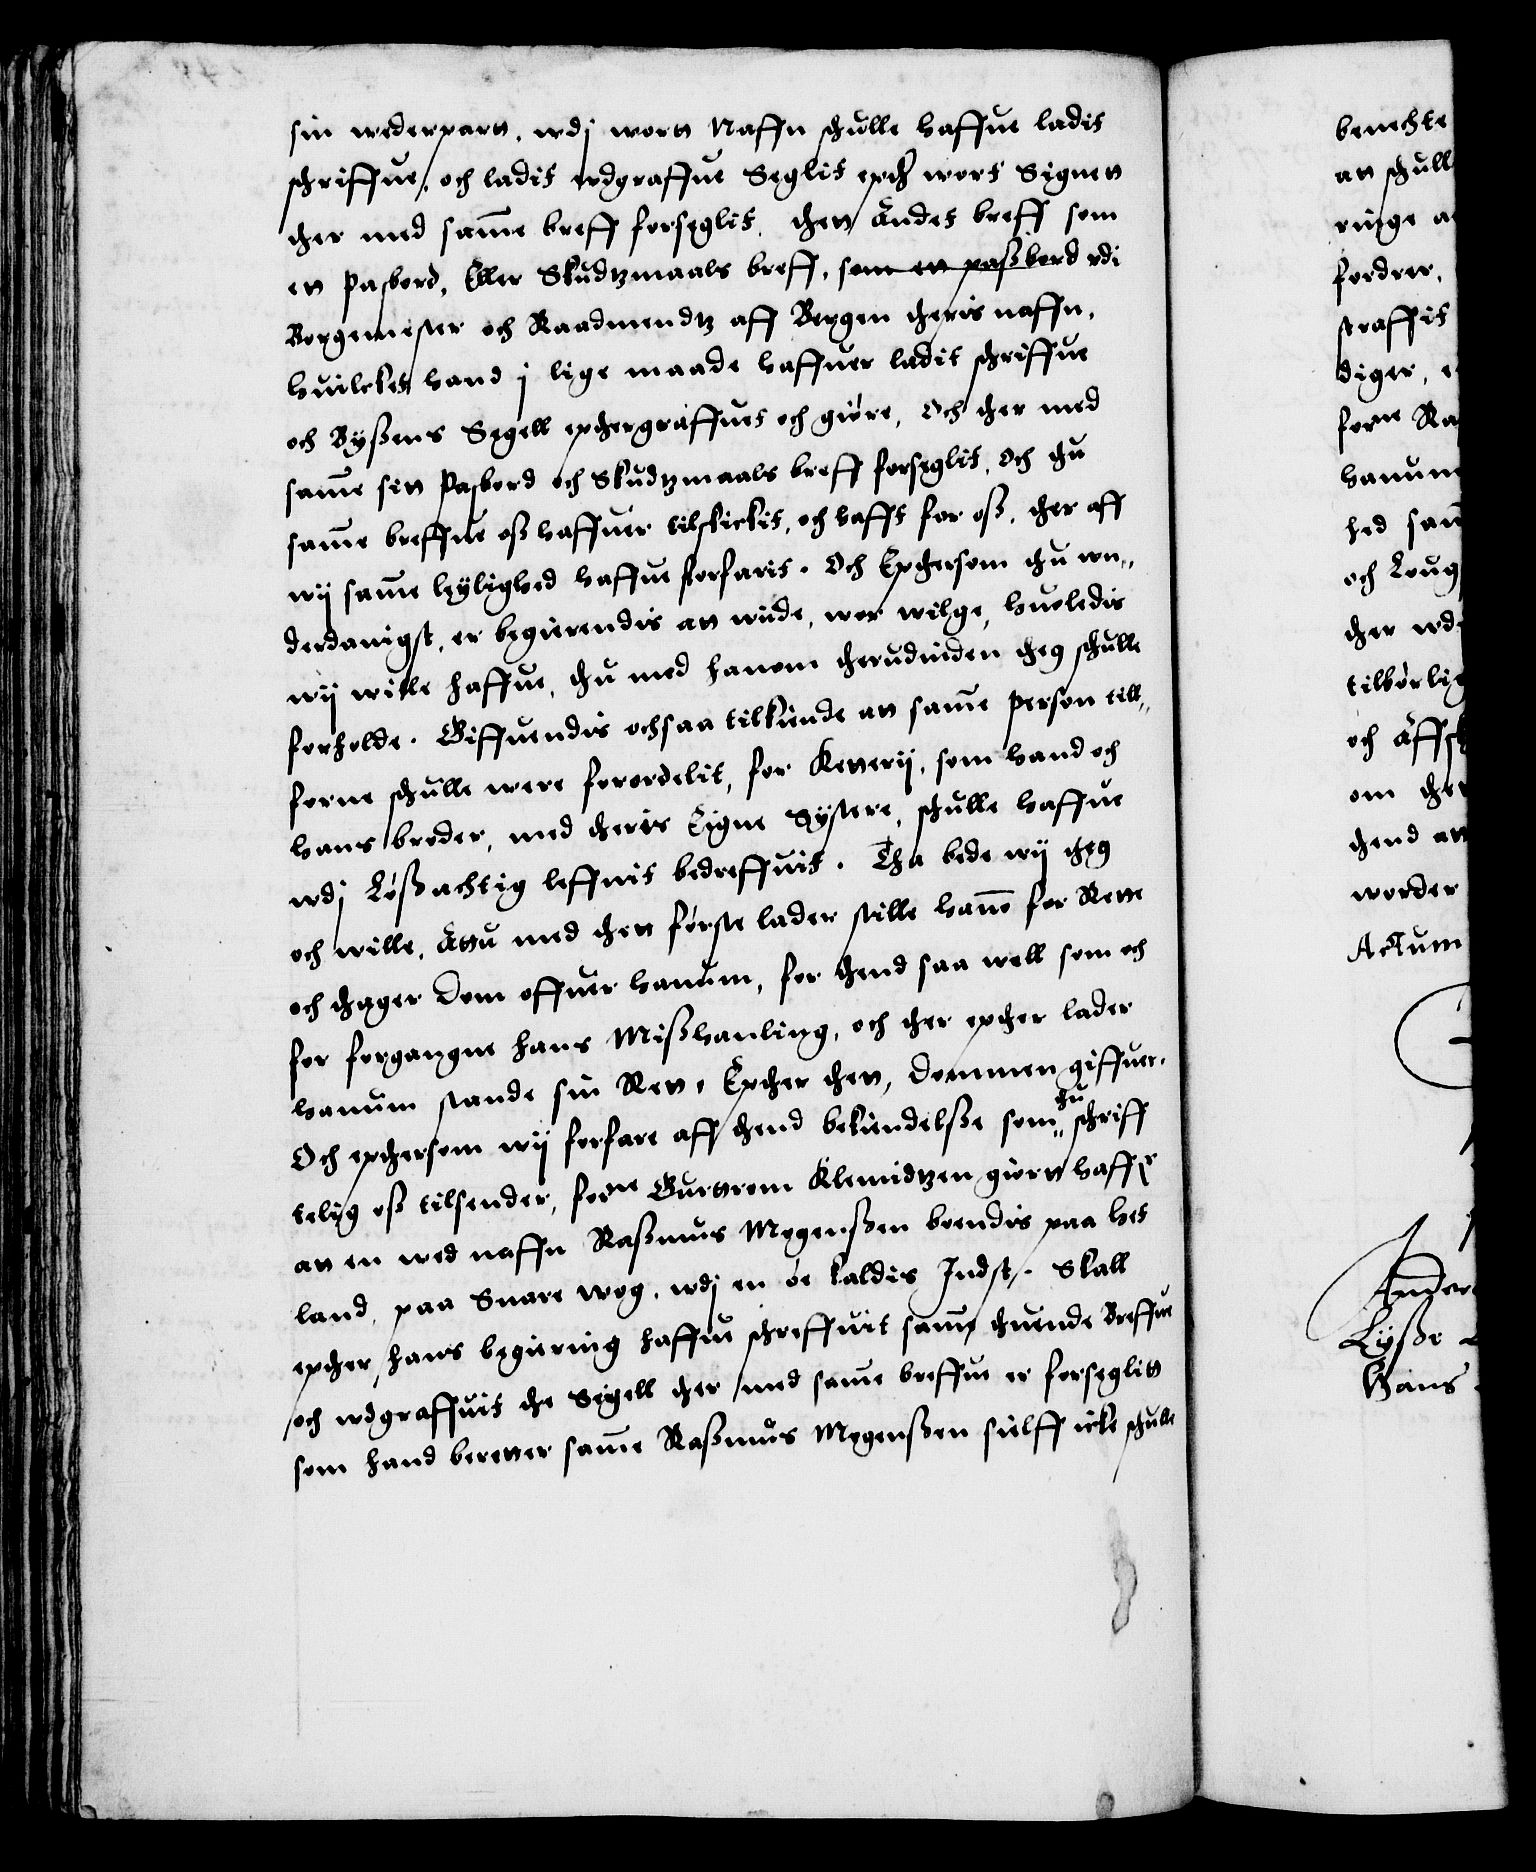 sin wederpartt, wdj wortt Naffn schulle haffue ladit
schriffue, och ladit wdgraffue Seglit epther wort Signett
ther med samme breff forseglit. thett Andet breff som
en Pasbord, Eller Skudtzmaals breff, som en passbord vdi
Borgemester och Raadmendtz aff Bergen theris naffn,
huilckett hand j lige maade haffuer ladit schriffue
och Byßens Segell epthergraffuet och giøre, Och ther med
samme sin Pasbord och Skudtzmaals breff forseglit, Och thu
samme breffue oß haffuer tilskickit, och hafft for oß, ther aff
wij samme leylighed haffue forfarit. Och Epthersom thu wn„
derdanigst, er begierendis att wide, wor wilge, huoledis
wij wille haffue, thu med hanom therudinden theg schulle
forholde. Giffuendis ochsaa tilkiende att samme person till„
forne schulle were forordelit, for Ketterij, som hand och
hans broder, med theris Eigne Systere, schulle haffue
wdj Løßachtig leffnit bedreffuit. Tha bede wij theg
och wille, Attu med thett første lader stille hannom for Rette
och thager dom offuer hanum, for thend saa well som och
for forgangne hans Mißhanling, och ther epther lader
hanum stande sin Rett, Epther thett, dommen giffuer.
Och epthersom wij forfare aff thend bekiendelße som„ thu schriff
telig oß tilsender, forne Guttrom Klemidtzen giortt haffuer
att en wed naffn Raßmus Mogenßen boendis paa Het
land, paa Snare wog, wdj en øe kaldis Indst. Skall
epther hans begiering haffue schreffuit samme thuende Breffue
och wdgraffuit the Segell ther med samme breffue er forseglitt
som hand beretter samme Raßmus Mogenßen sielff icke schulle
benechte
att schull
ringe
fordrer,
straffis
diger,
forne
hanum
hed
och
ther wd
tilbørlig
och
om
thend att
worder
Actum
Lyße
Hans